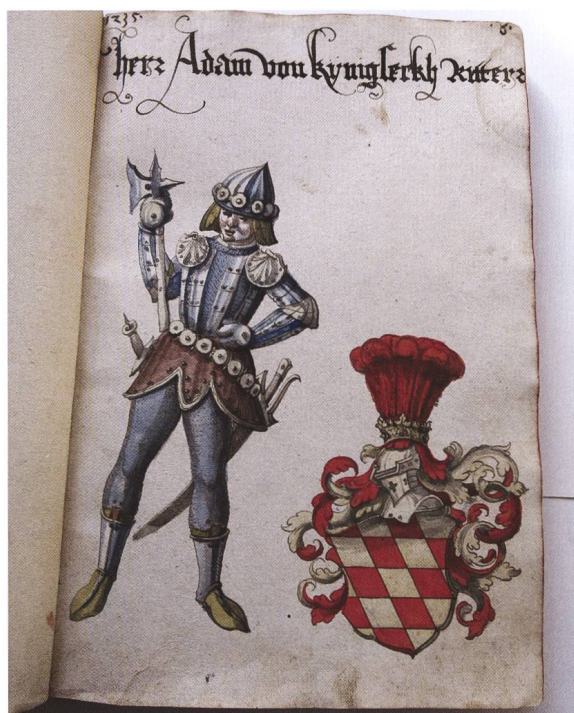 1235
5
herr Adam von kynigseckh Ritterr